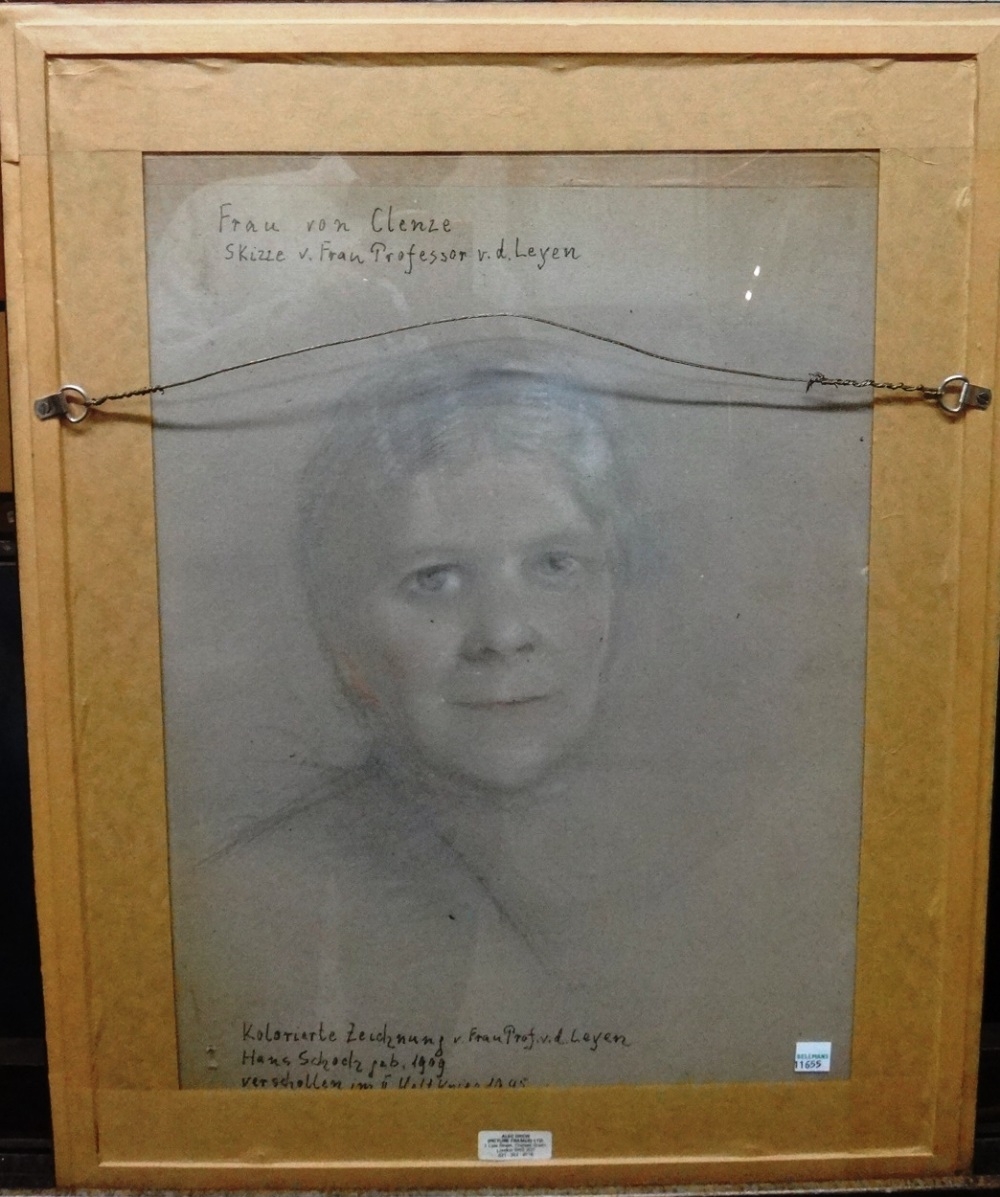 Frau von Clenze
Skizze v. Frau Professor v. d. Leyen
Kolorierte Zeichnung v. Frau Prof. v. d. Leyen
Hans Schoch geb. 1909
verschollen im II Weltkrieg 1945
11655
London